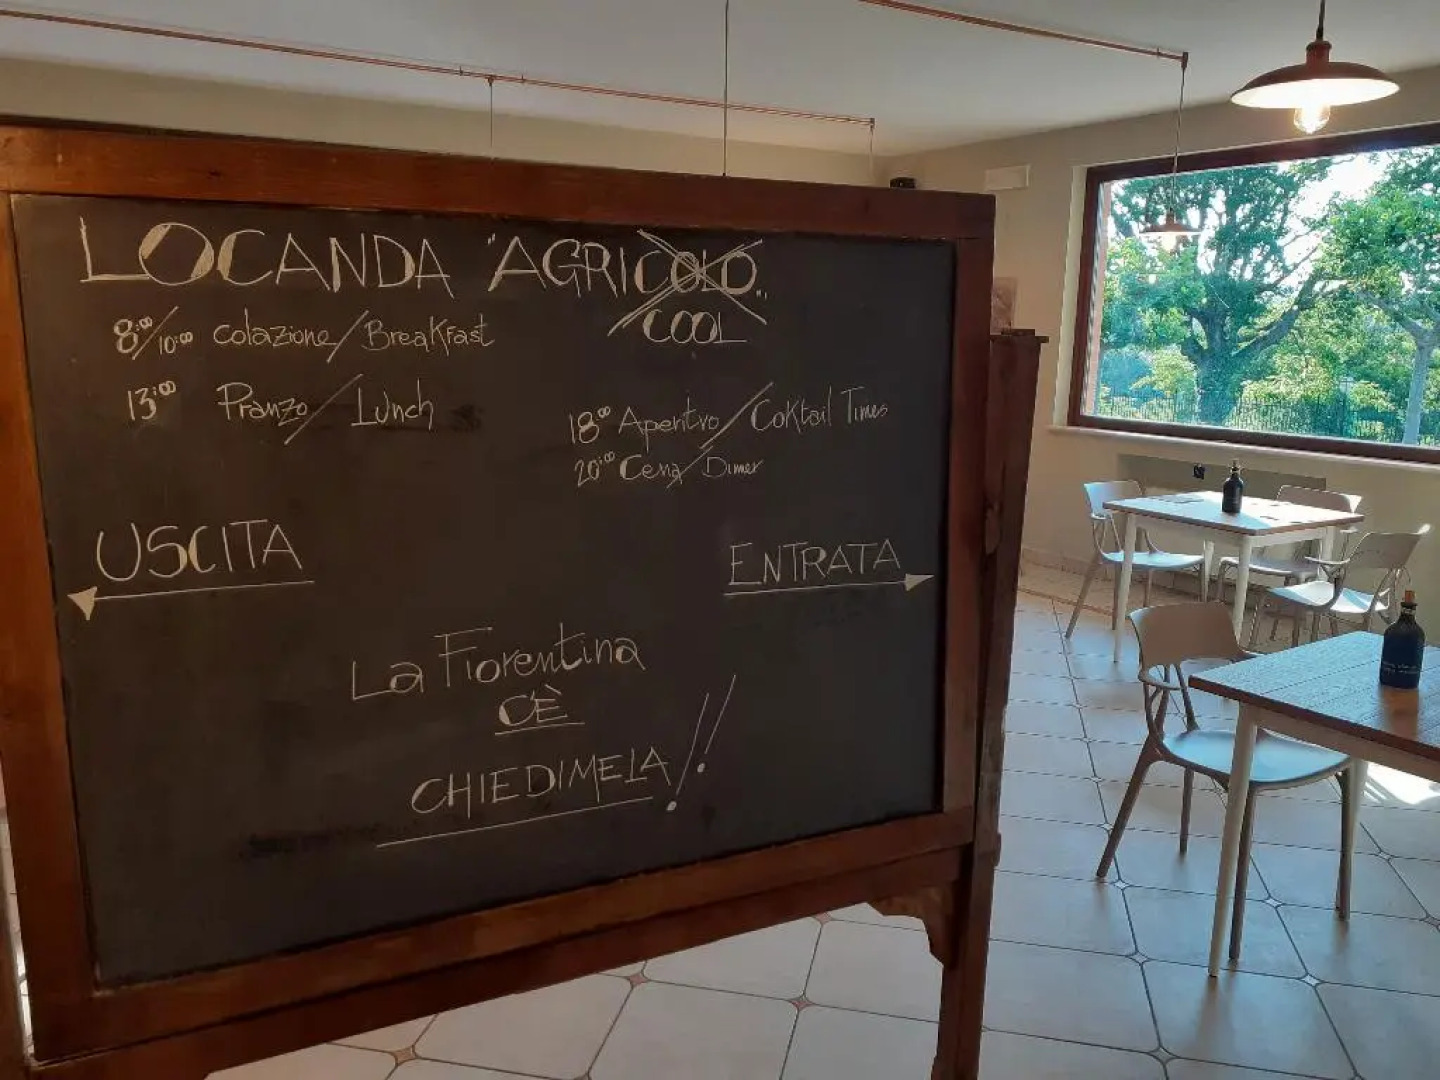 LOCANDA "AGRICOLO"
COOL
8:00/10:00 colazione/Breakfast
13:00 Pranzo/Lunch
18:00 Aperitvo/Coktail Times
20:00 Cena/Dinner
USCITA
ENTRATA
La Fiorentina
C'È
CHIEDIMELA!!